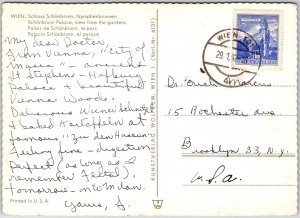 WIEN, Schloss Schönbrunn, Nymphenbrunnen
Schönbrunn Palace, view from the gardens
Palais de Schönbrunn, le parc
Palacio Schönbrunn, el parque
My dear Doctor,
from Vienna, "City of
Music" - ancient
St. Stephens - Hofburg
Palace & beautiful
Vienna Woods.
Delicious Wiener
& baked Kartoffeln at
famous "Zu den Husaren"
Feeling fine - digestion
Perfect (as long as I
remember Festal),
Tomorrow - on to Milan.
Yours, J.
Printed in U.S.A.
WIEN
Dr. Marcus
15 Rochester Ave
Brooklyn 33, N.Y.
U.S.A.